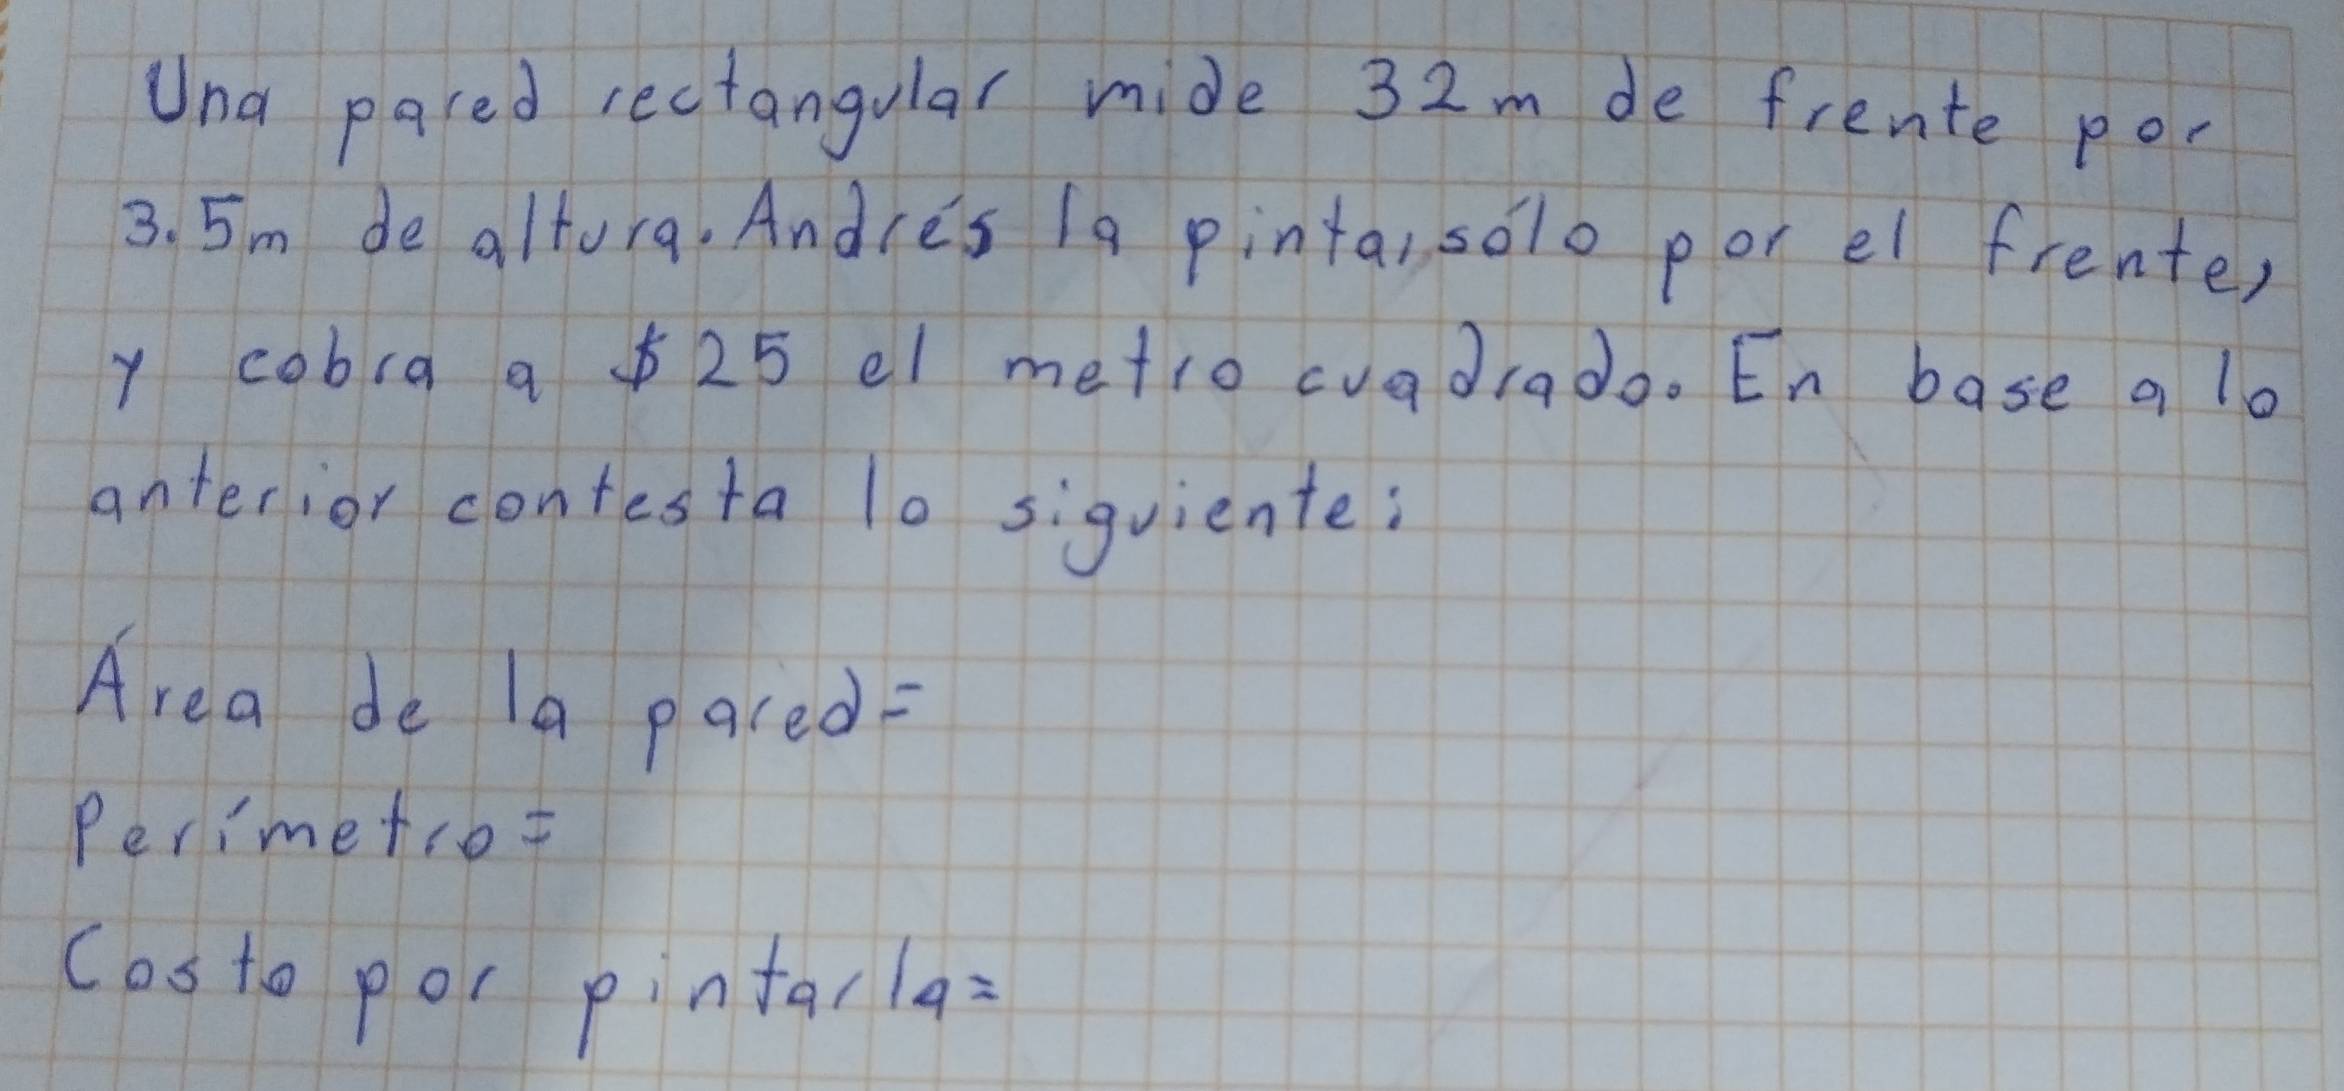 Una pared rectangular mide 32m de frente por
3.5m de altura. Andrés la pinta, sólo por el frente,
y cobra a $25 el metro cuadrado. En base a lo
anterior contesta lo siguiente:
Área de la pared=
Perímetro=
Costo por pintarla=